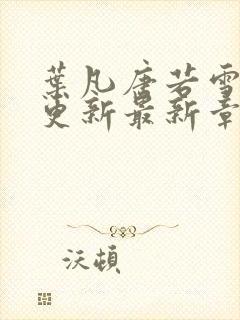 葉凡唐若雪
更新最新章
沃頓